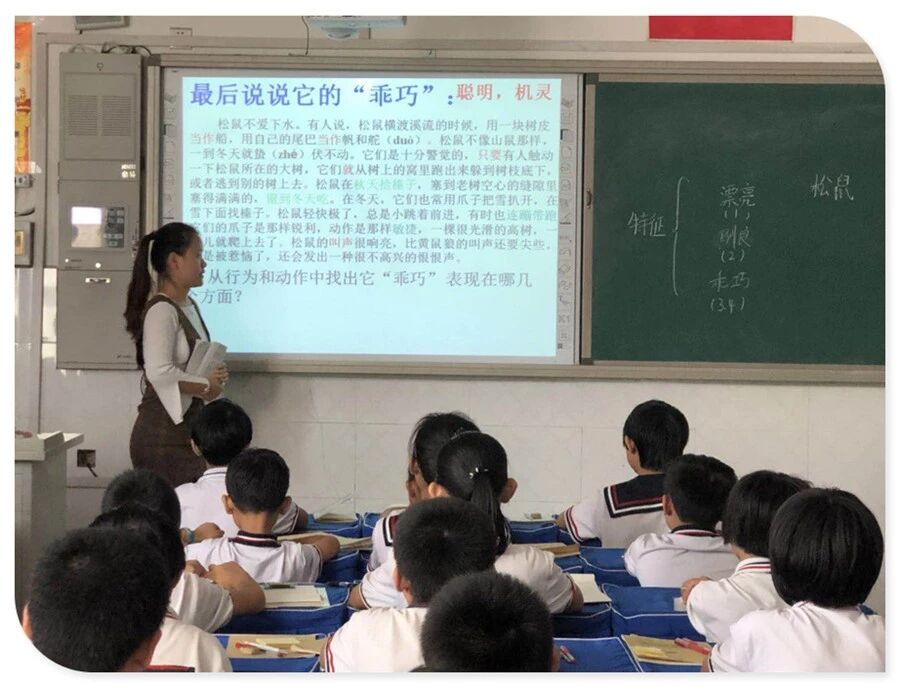 最后说说它的“乖巧”：聪明，机灵
松鼠不爱下水。有人说，松鼠横渡溪流的时候，用一块树皮
当作船，用自己的尾巴当作帆和舵（duò）。松鼠不像山鼠那样，
一到冬天就蛰（zhé）伏不动。它们是十分警觉的，只要有人触动
一下松鼠所在的大树，它们就从树上的窝里跑出来躲到树枝底下，
或者逃到别的树上去。松鼠在秋天拾榛子，塞到老树空心的缝隙里
塞得满满的，留到冬天吃。在冬天，它们也常用爪子把雪扒开，在
雪下面找榛子。松鼠轻快极了，总是小跳着前进，有时也连蹦带跑
们的爪子是那样锐利，动作是那样敏捷，一棵很光滑的高树，一
儿就爬上去了。松鼠的叫声很响亮，比黄鼠狼的叫声还要尖些。
是被惹恼了，还会发出一种很不高兴的恨恨声。
从行为和动作中找出它“乖巧”表现在哪几
个方面？
松鼠
特征
漂亮
(1)
驯良
(2)
乖巧
(3.4)